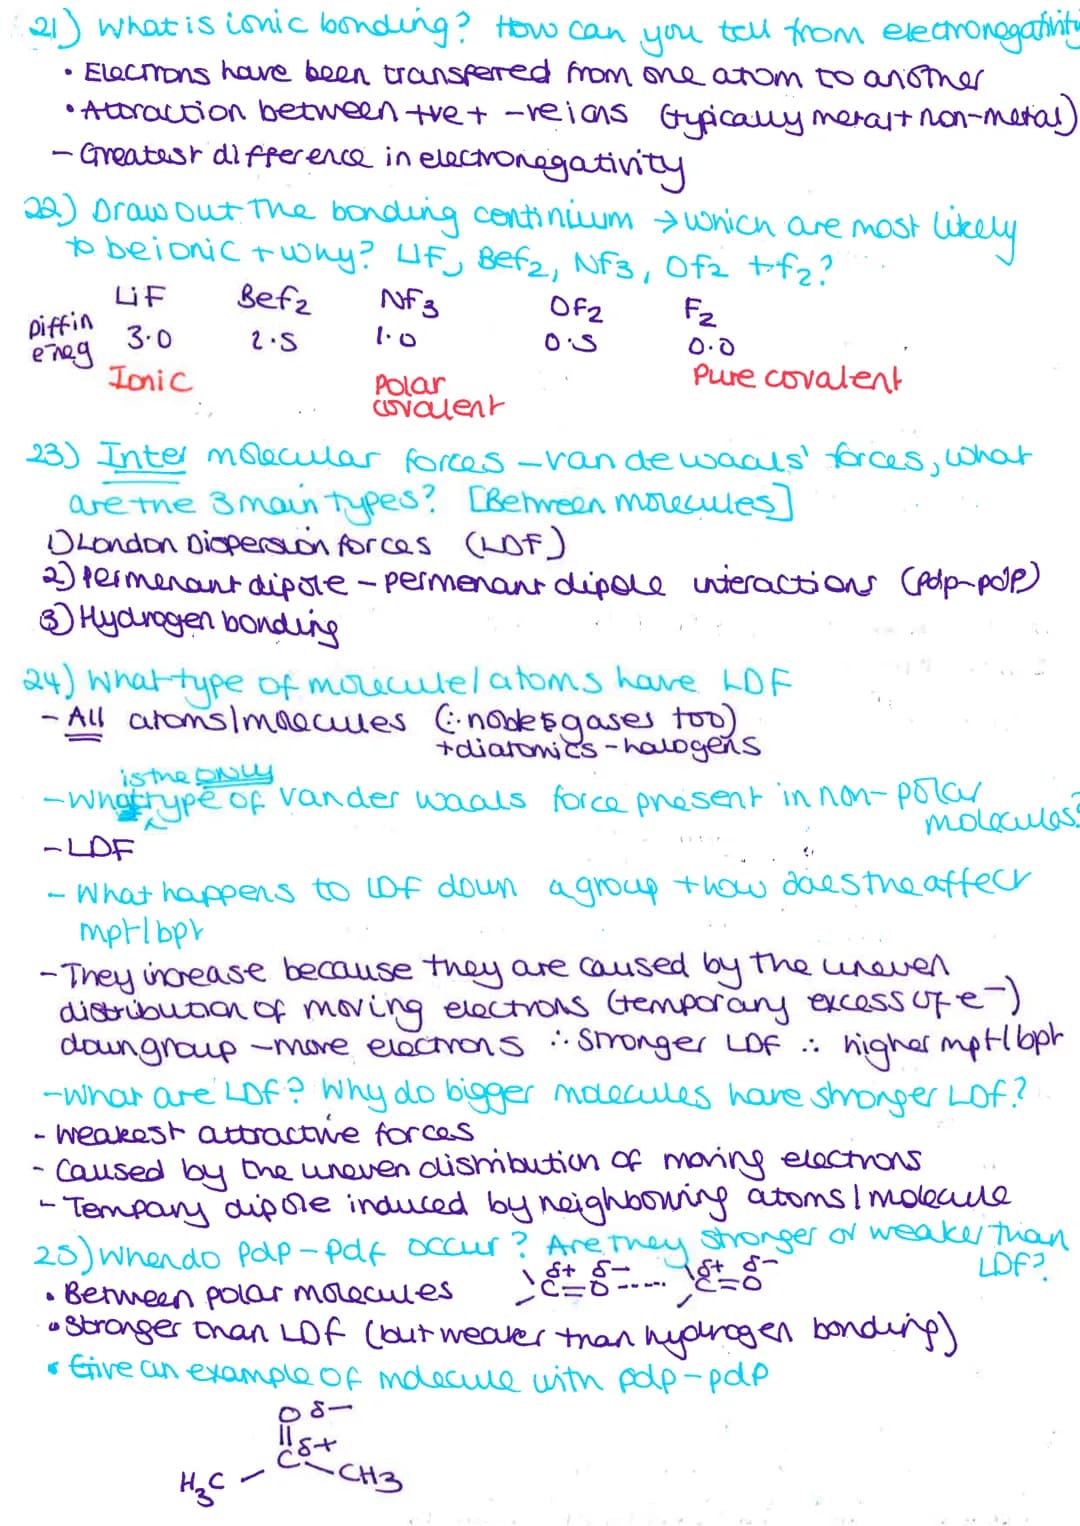 21) What is ionic bonding? How can you tell from electronegativity
• Electrons have been transferred from one atom to another
• Attraction between +ve + -ve ions (typically metal + non-metal)
- Greatest difference in electronegativity
22) Draw out the bonding continium → which are most likely
to be ionic + why? LiF, Bef2, Nf3, Of2 + f2?
LiF Bef2 Nf3 Of2 F2
Diff in
eneg 3.0 2.5 1.0 0.5 0.0
Ionic Polar covalent Pure covalent
23) Inter molecular forces - van de waals' forces, what
are the 3 main types? [Between molecules]
1) London Dispersion forces (LDF)
2) Permenant dipole - permenant dipole interactions (pdp-pdp)
3) Hydrogen bonding
24) What type of molecule/atoms have LDF
- All atoms/molecules (∴ nobles gases too)
+ diatomics - halogens
is the ONLY
- What type of van der waals force present in non-polar
molecules?
- LDF
- What happens to LDF down a group + how does the affect
mpt/bpt
- They increase because they are caused by the uneven
distribution of moving electrons (temporary excess of e-)
down group - more electrons ∴ stronger LDF ∴ higher mpt/bpt
- What are LDF? Why do bigger molecules have stronger LDF?
- Weakest attractive forces
- Caused by the uneven distribution of moving electrons
- Tempary dipole induced by neighbouring atoms/molecule
25) When do pdp-pdf occur? Are they stronger or weaker than
LDF?
• Between polar molecules δ+ δ- δ+ δ-
C=O ----- C=O
• Stronger than LDF (but weaker than hydrogen bonding)
• Give an example of molecule with pdp-pdp
O δ-
C δ+
H3C CH3